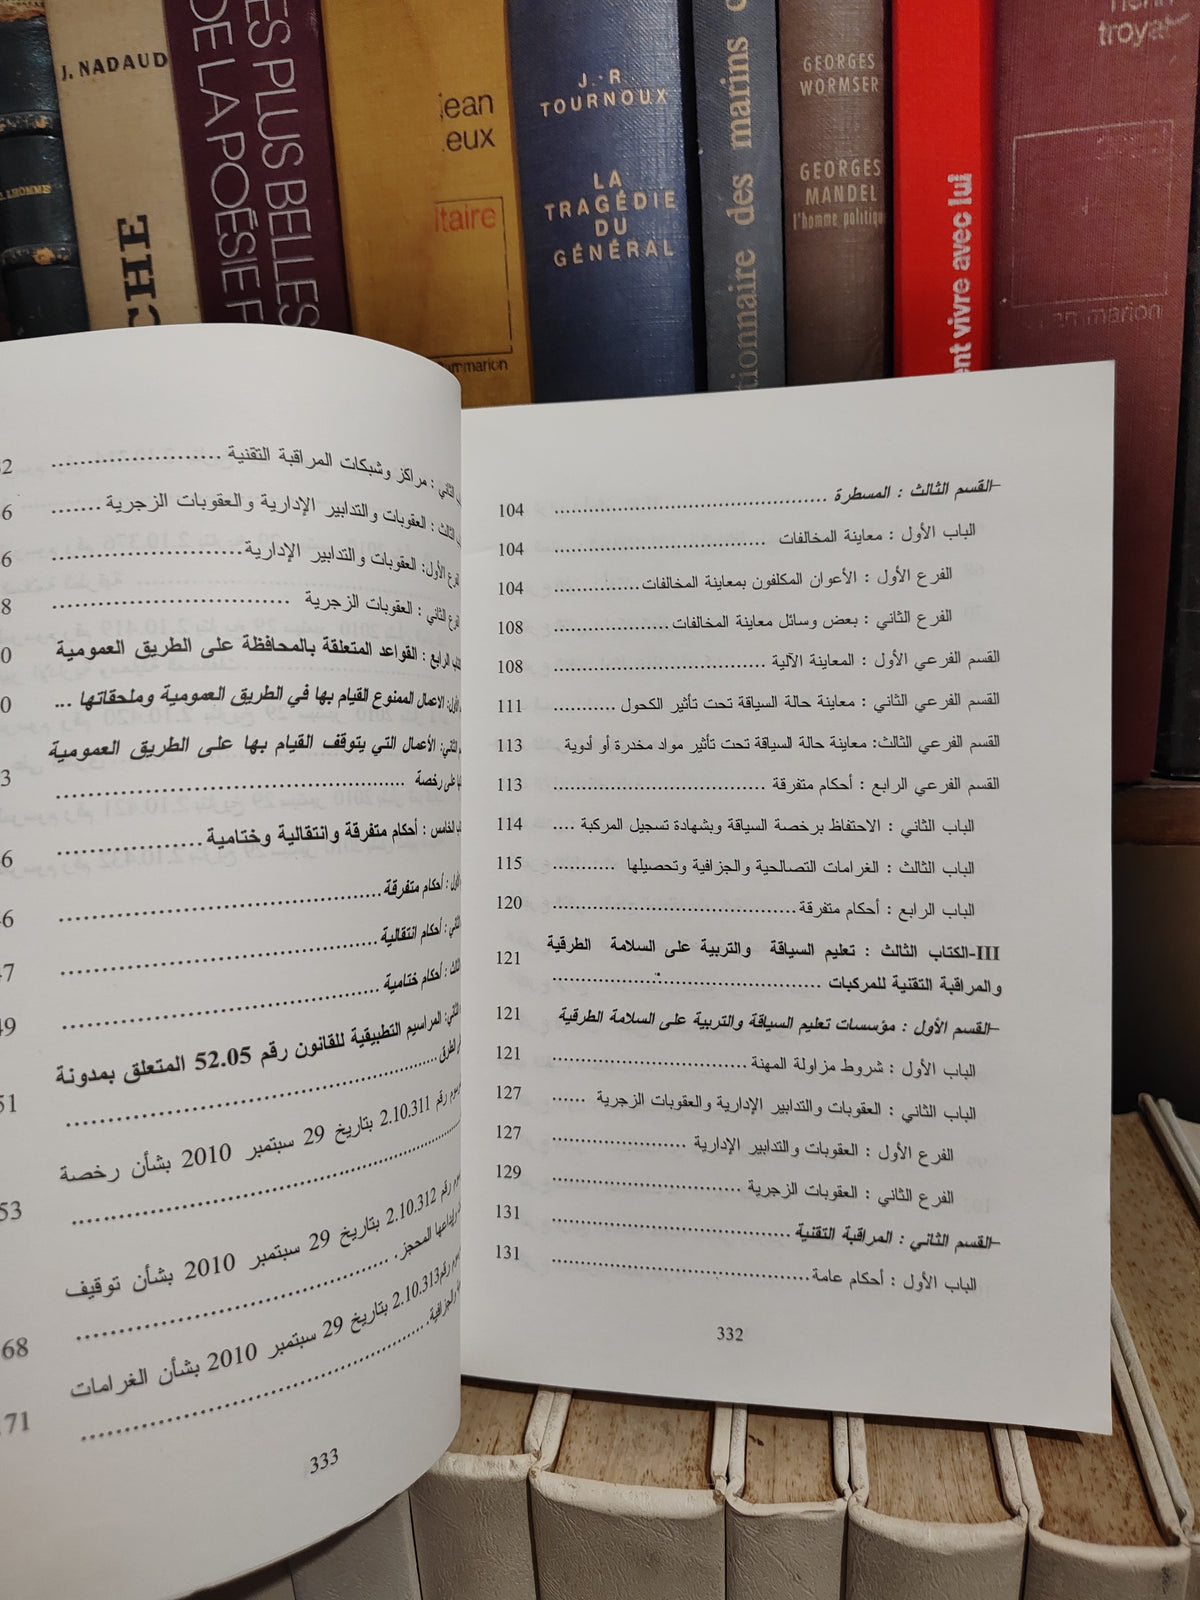 J. NADAUD
CHE
L. LHOMME
ES PLUS BELLES
DE LA POÉSIE F
jean
eux
itaire
ammarion
J. R.
TOURNOUX
LA
TRAGÉDIE
DU
GÉNÉRAL
tionnaire des marins
GEORGES
WORMSER
GEORGES
MANDEL
l'homme politique
ent vivre avec lui
henri
troyat
flammarion
–القسم الثالث : المسطرة ...................................... 104
الباب الأول : معاينة المخالفات ............................... 104
الفرع الأول : الأعوان المكلفون بمعاينة المخالفات............ 104
الفرع الثاني : بعض وسائل معاينة المخالفات.................... 108
القسم الفرعي الأول : المعاينة الآلية .............................. 108
القسم الفرعي الثاني : معاينة حالة السياقة تحت تأثير الكحول ........... 111
القسم الفرعي الثالث: معاينة حالة السياقة تحت تأثير مواد مخدرة أو أدوية 113
القسم الفرعي الرابع : أحكام متفرقة .............................. 113
الباب الثاني : الاحتفاظ برخصة السياقة وبشهادة تسجيل المركبة .... 114
الباب الثالث : الغرامات التصالحية والجزافية وتحصيلها ........... 115
الباب الرابع : أحكام متفرقة.................................... 120
III-الكتاب الثالث : تعليم السياقة والتربية على السلامة الطرقية
والمراقبة التقنية للمركبات ........................................ 121
–القسم الأول : مؤسسات تعليم السياقة والتربية على السلامة الطرقية 121
الباب الأول : شروط مزاولة المهنة ............................. 121
الباب الثاني : العقوبات والتدابير الإدارية والعقوبات الزجرية ...... 127
الفرع الأول : العقوبات والتدابير الإدارية ....................... 127
الفرع الثاني : العقوبات الزجرية ................................ 129
–القسم الثاني : المراقبة التقنية ..................................... 131
الباب الأول : أحكام عامة........................................ 131
332
الثاني : مراكز وشبكات المراقبة التقنية ........................ 2
الثالث : العقوبات والتدابير الإدارية والعقوبات الزجرية ....... 6
الفرع الأول: العقوبات والتدابير الإدارية........................... 6
الفرع الثاني : العقوبات الزجرية ................................. 8
الرابع : القواعد المتعلقة بالمحافظة على الطريق العمومية 0
الأول: الاعمال الممنوع القيام بها في الطريق العمومية وملحقاتها ... 0
الثاني: الأعمال التي يتوقف القيام بها على الطريق العمومية
على رخصة ................................................ 3
الخامس : أحكام متفرقة وانتقالية وختامية .................... 6
الأول : أحكام متفرقة............................................. 46
الثاني : أحكام انتقالية ............................................ 47
الثالث : أحكام ختامية ............................................ 49
الثاني: المراسيم التطبيقية للقانون رقم 52.05 المتعلق بمدونة
الطرق................................................... 51
رقم 2.10.311 بتاريخ 29 سبتمبر 2010 بشأن رخصة
................................................... 53
رقم 2.10.312 بتاريخ 29 سبتمبر 2010 بشأن توقيف
وإيداعها المحجز. ........................................... 68
رقم 2.10.313 بتاريخ 29 سبتمبر 2010 بشأن الغرامات
والجزافية. ............................................... 71
333